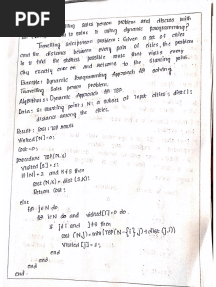 PDF
Travelling sales person problem and discuss with
to solve it using dynamic programming?
Travelling salesperson problem: Given a set of cities
and the distance between every pair of cities, the problem
is to find the shortest possible route that visits every
city exactly once and returns to the starting point.
Example: Dynamic Programming Approach for solving
Travelling Sales person problem.
Algorithm: Dynamic Approach for TSP.
Data: s: starting point; N: a subset of input cities; dist():
distance among the cities.
Result: Cost: TSP result
Visited[N] = 0;
Cost = 0;
Procedure TSP(N, s)
Visited[s] = 1;
if |N| = 2 and k ≠ s then
Cost (N, k) = dist (s, k);
Return Cost;
else
for j ∈ N do
for i ∈ N do and visited[i] = 0 do
if j ≠ i and j ≠ s then
Cost (N, j) = min (TSP(N-{i}, j) + dist (j, i))
Visited[j] = 1;
end
end
end
end
end